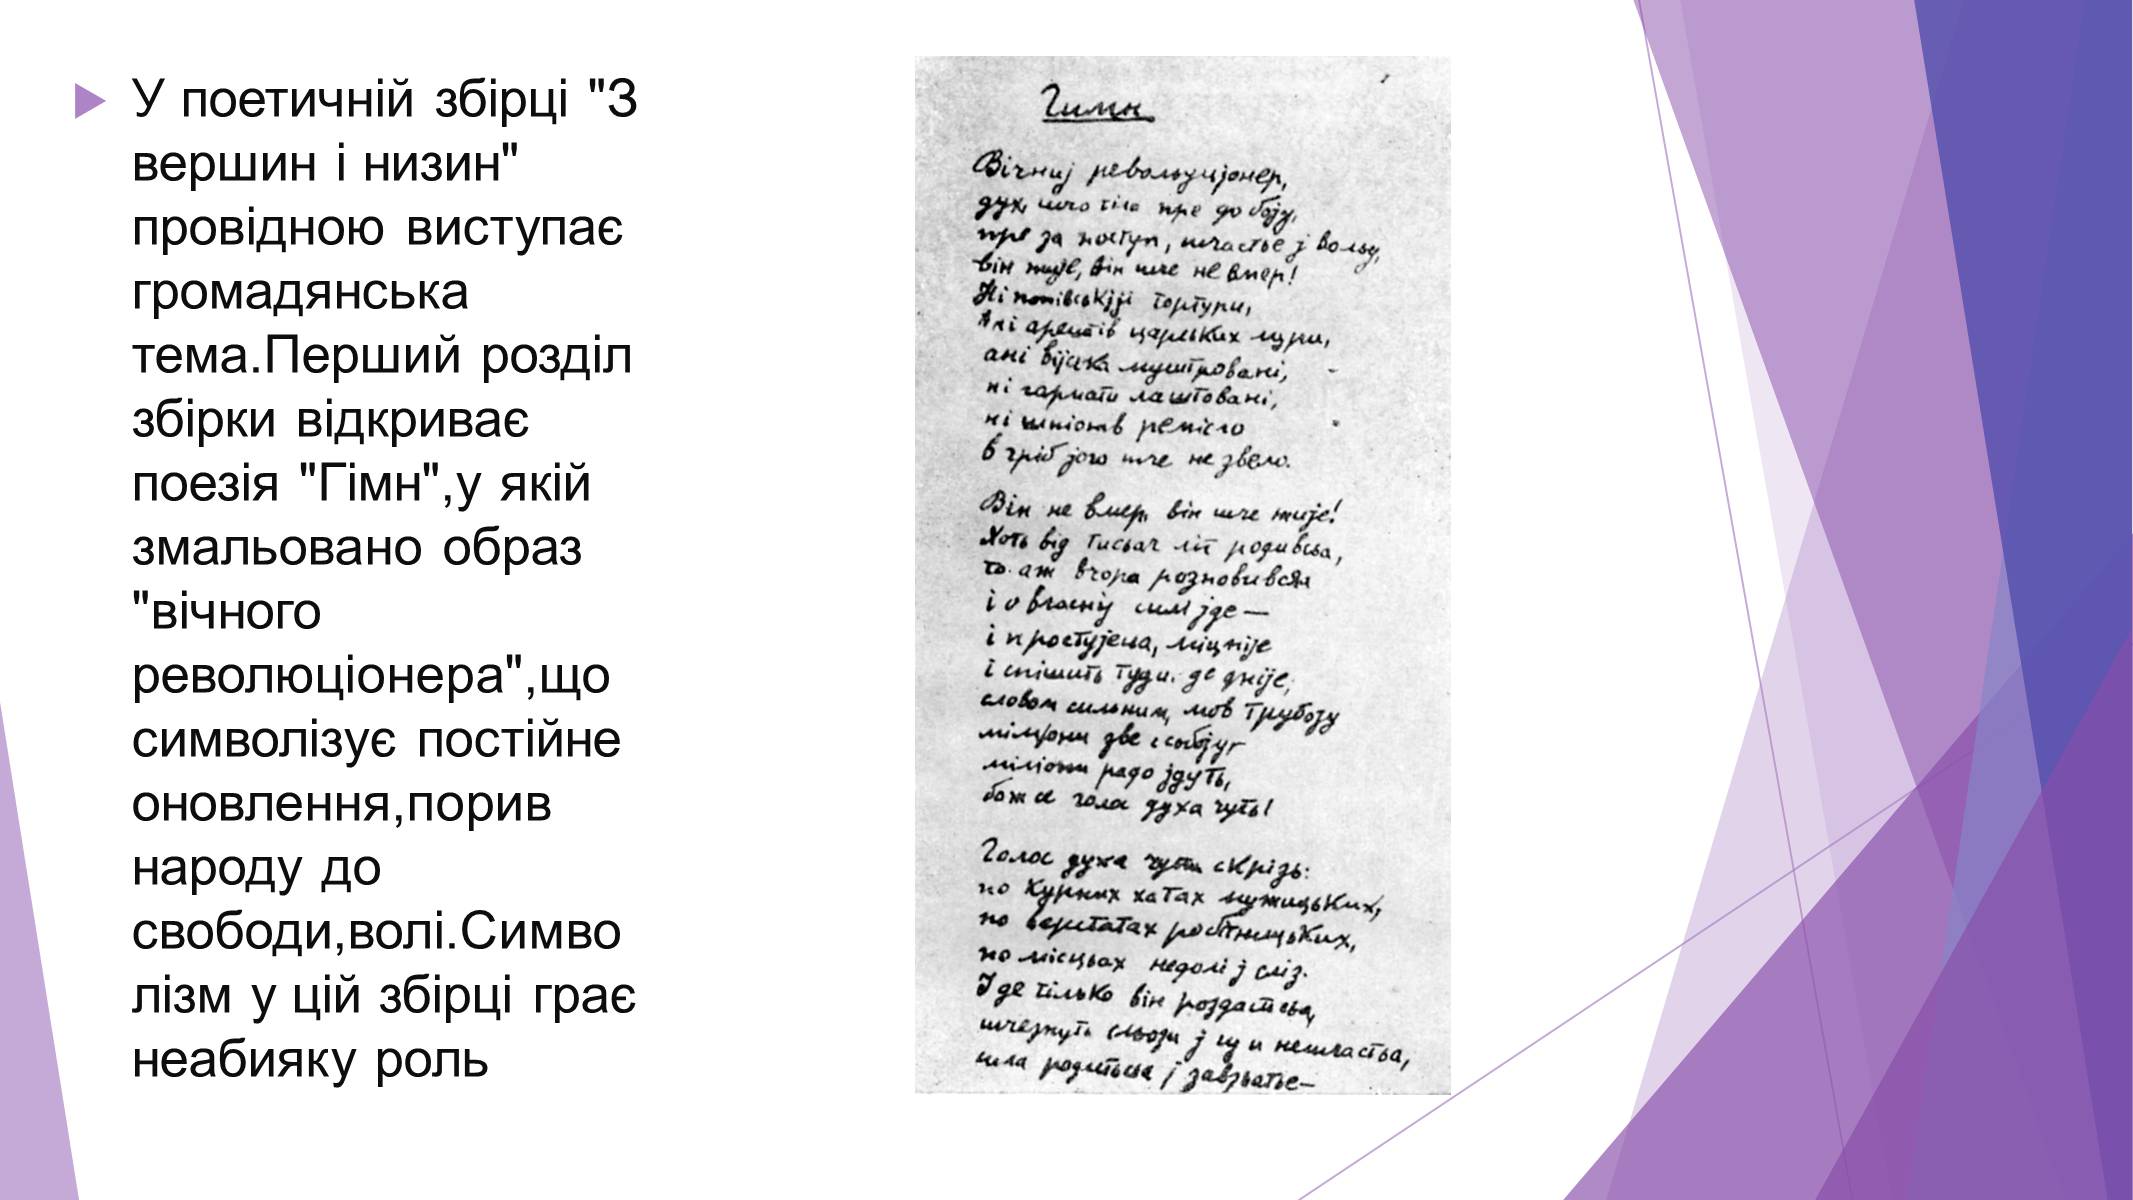 У поетичній збірці "З
вершин і низин"
провідною виступає
громадянська
тема.Перший розділ
збірки відкриває
поезія "Гімн",у якій
змальовано образ
"вічного
революціонера",що
символізує постійне
оновлення,порив
народу до
свободи,волі.Симво
лізм у цій збірці грає
неабияку роль
Гимн
Вічниј револьуціјонер,
дух, шчо тіло пре до бојy,
пре за поступ, шчастье ј вольу,
він жијe, він шче не вмер!
Ні попівськіјі тортури,
Ані арештів царських мури,
ані війска муштровані,
ні гармати лаштовані,
ні шпіонів ремісло
в гріб јого шче не звело.
Він не вмер, він шче жије!
Хоть від тисьач літ родивсьа,
то аж вчора розновивсьа
і о власніј силі јде —
і простујесьа, міцніје
і спішить туди, де дніје;
словом сильним, мов трубоју
міліони зве з собоју,
міліони радо јдуть,
бож се голос духа чуть!
Голос духа чути скрізь:
по курних хатах мужицьких,
по верстатах робітницьких,
по місцьах недолі ј сліз.
І де тілько він роздастьсьа,
шчезнуть сльози ј нешчастьа,
сила родитьсьа ј завзьатье —